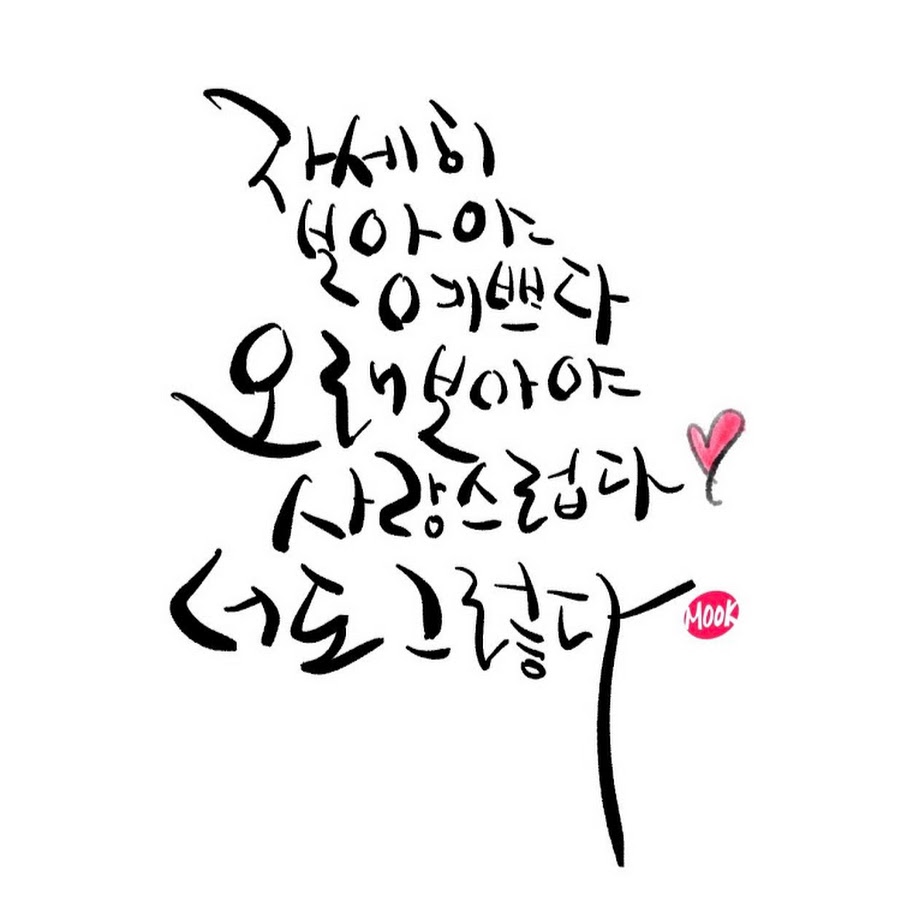 자세히
보아야
예쁘다
오래 보아야
사랑스럽다
너도 그렇다
MOOK